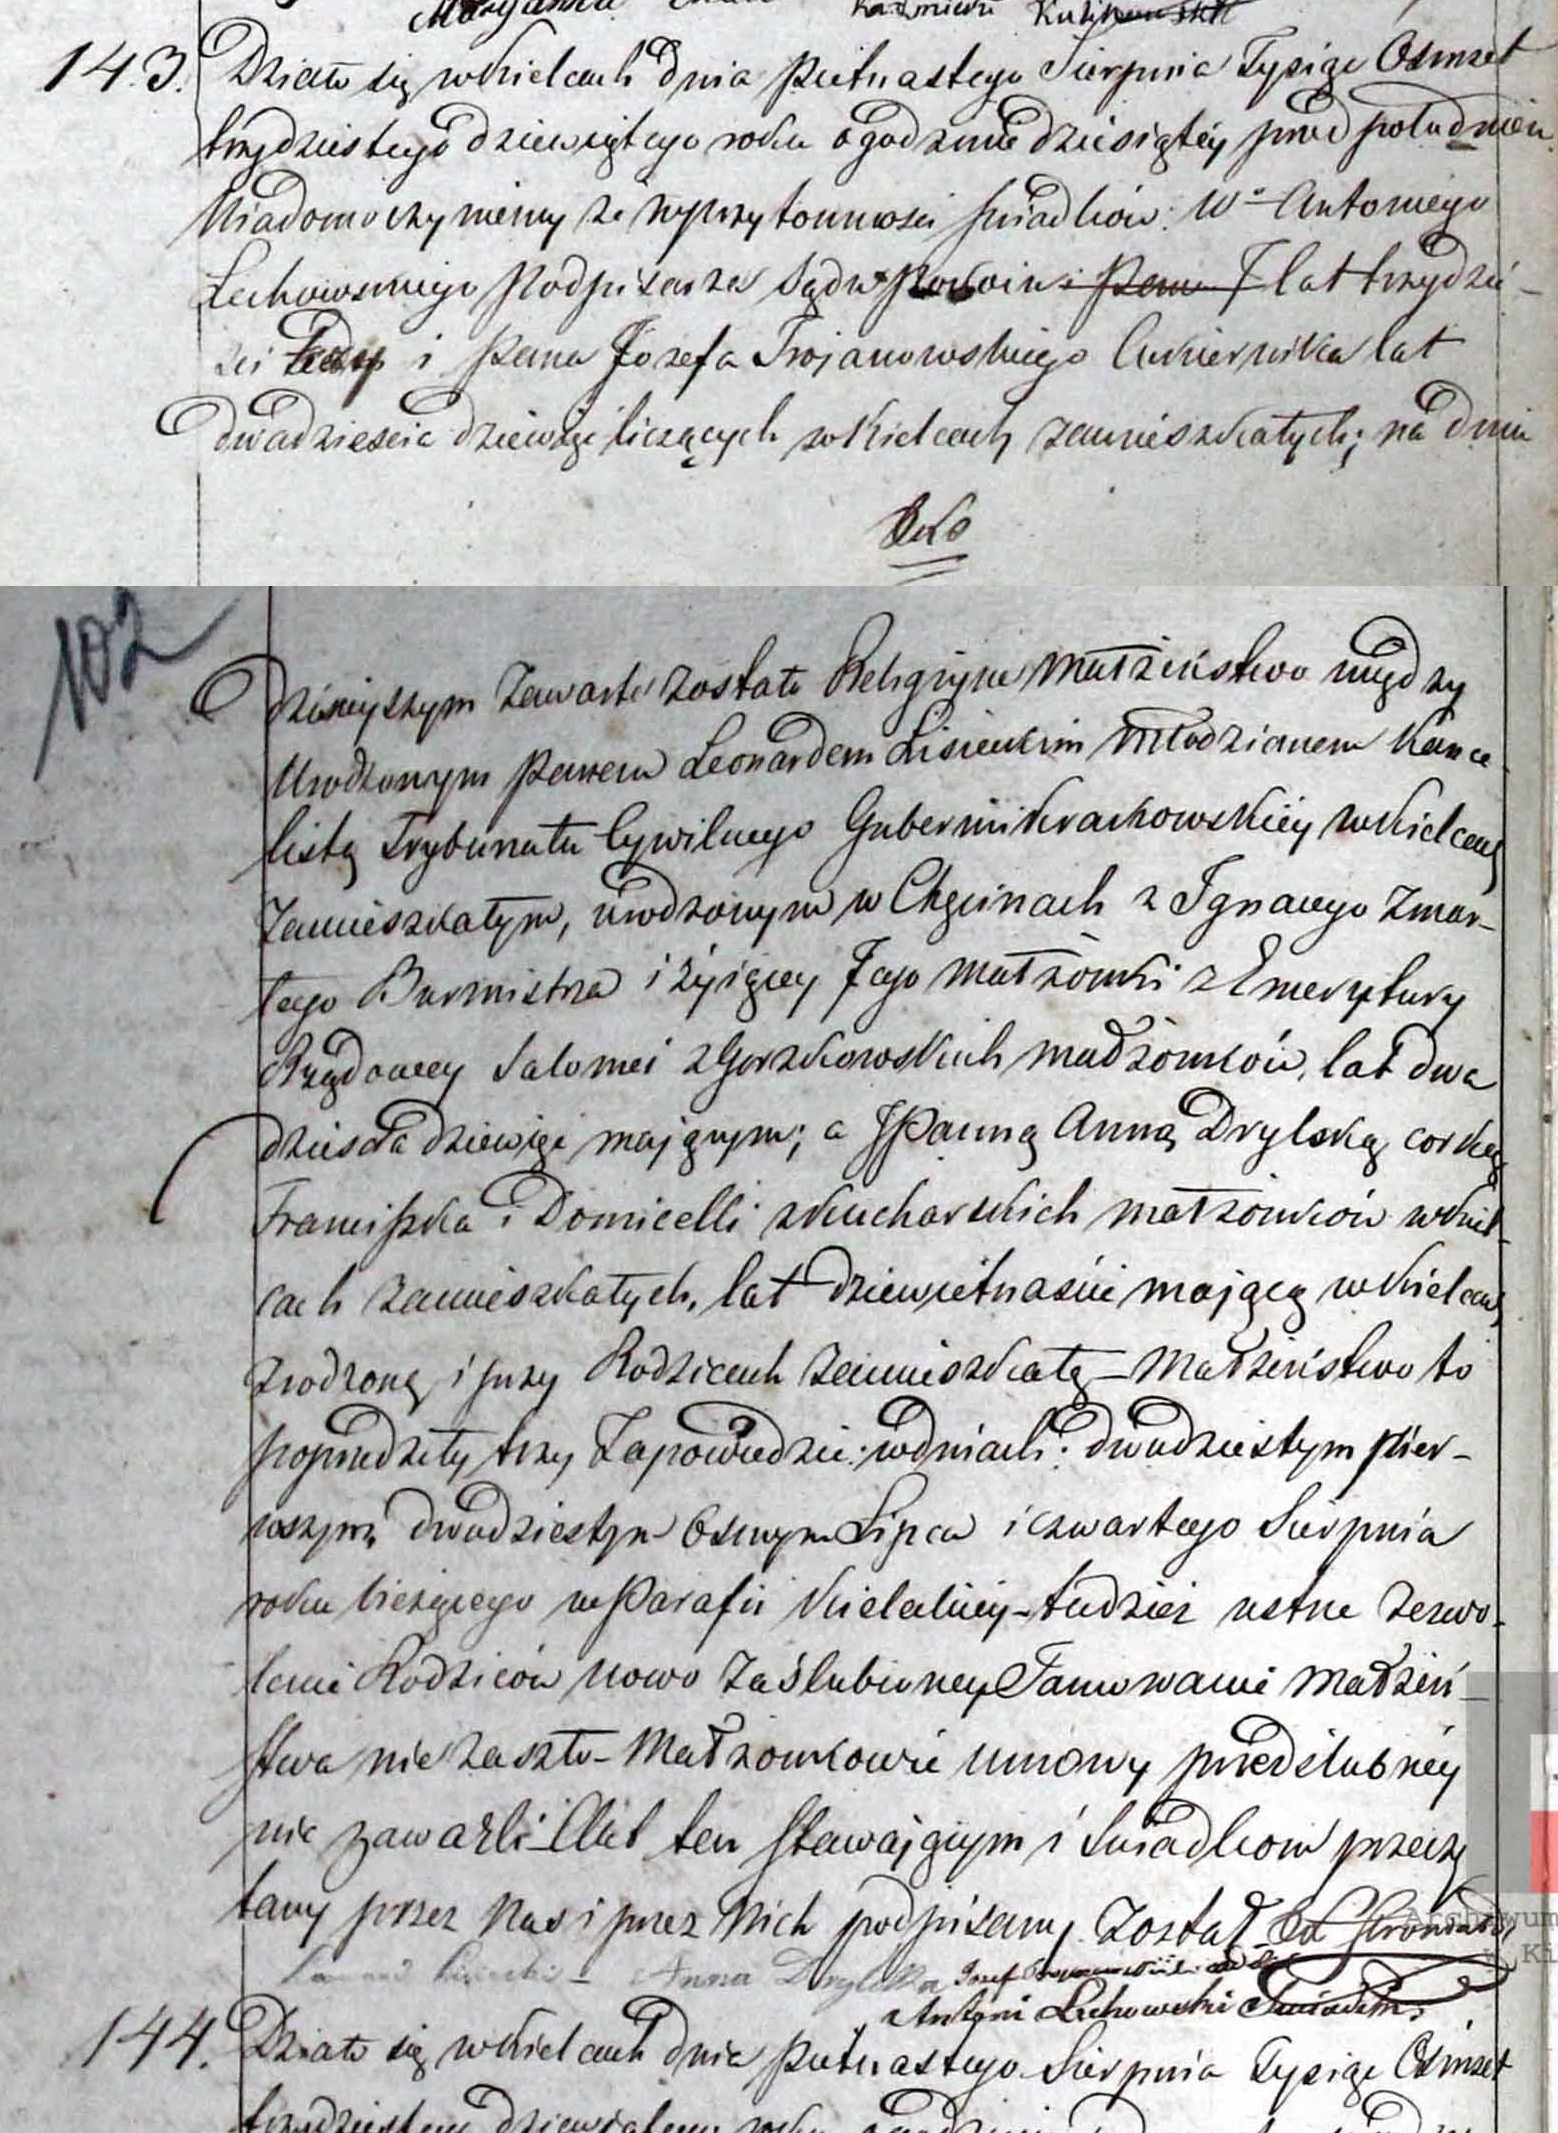 Maryanna Kazimierz
143. Działo się w Kielcach dnia Piętnastego Sierpnia Tysiąc Osmset
trzydziestego dziewiątego roku o godzinie dziesiątéy przed południem
Wiadomo czyniemy że w przytomności świadków: Wo Antoniego
Lechowskiego Podpisarza Sądu Pokoiu i Pana lat trzydzie-
ści i Pana Jozefa Troianowskiego Cukiernika lat
dwadzieścia dziewięć liczących w Kielcach zamieszkałych; na dniu
102
dzisieyszym zawarte zostało Religijne Małżeństwo między
Urodzonym Panem Leonardem Lisieckim Młodzianem Kance-
listą Trybunału Cywilnego Gubernii Krakowskiéy w Kielcach
Zamieszkałym, urodzonym w Chęcinach z Ignacego Zmar-
łego Burmistrza i żyiącey Jego Małżonki z Emerytury
Rządowey Salomei z Gorzkowskich małżonków, lat dwa
dzieścia dziewięć maiącym; a JPanną Anną Drylską corką
Franciszka i Domicelli z Kucharskich małżonków w Kiel-
cach zamieszkałych, lat dziewiętnaście mającą w Kielcach
zrodzoną i przy Rodzicach zamieszkałą – Małżeństwo to
poprzedziły trzy Zapowiedzie: w dniach: dwudziestym pier-
wszym, dwudziestym Osmym Lipca i czwartego Sierpnia
roku bieżącego w Parafii Kieleckiey – tudzież ustne zezwo-
lenie Rodziców nowo Zaślubioney Tamowanie Małżeń-
stwa nie zaszło – Małżonkowie umowy przedślubnéy
nie zawarli – Akt ten stawaiącym i Świadkom przeczy
tany przez Nas i przez Nich podpisany Został
Lisiecki – Anna Drylska Jozef
Antoni Lechowski Świadek
144. Działo się w Kielcach dnia Piętnastego Sierpnia Tysiąc Osmset
trzydziestego dziewiątego roku